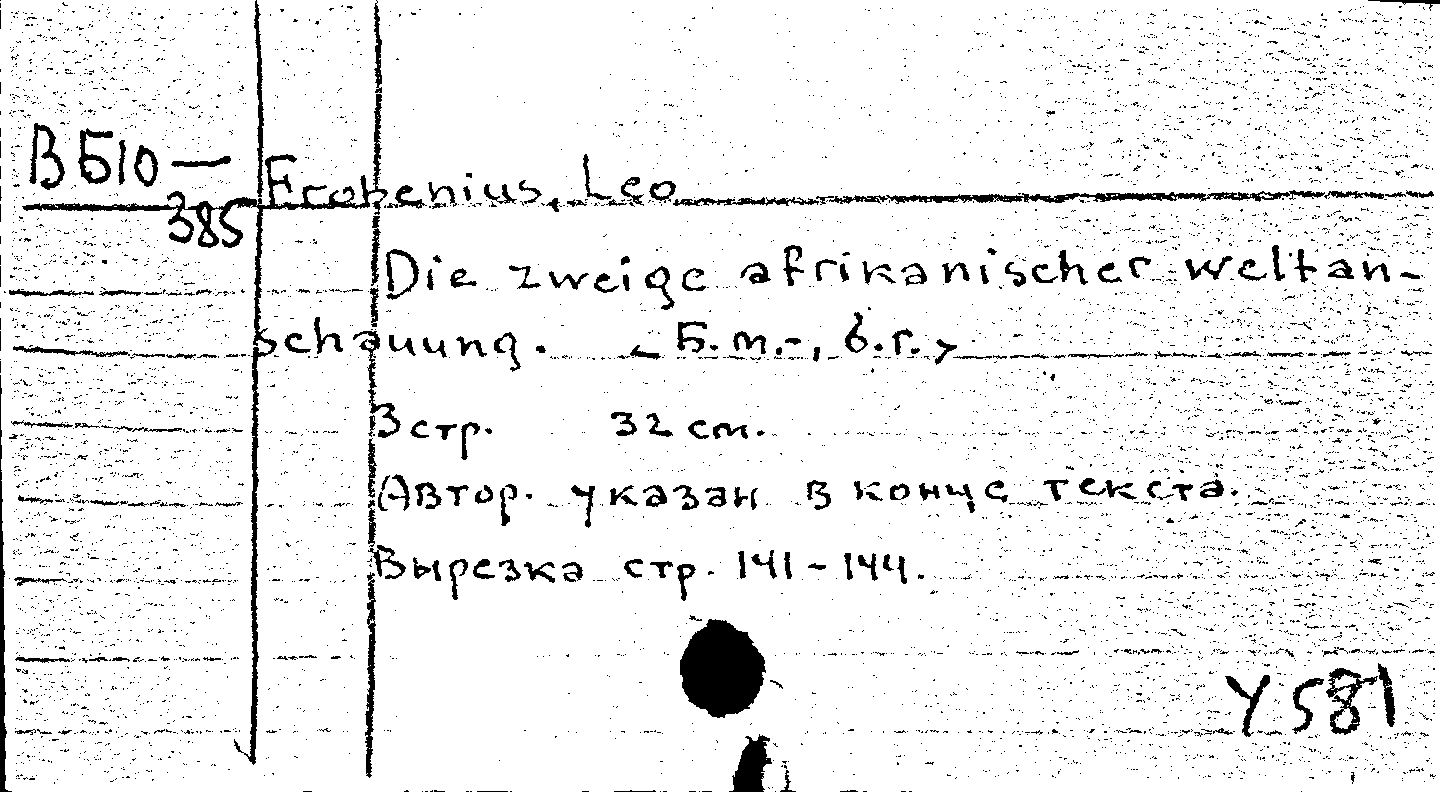 ВБ10—
385
Frobenius, Leo
Die zweige afrikanischer weltan-
schauung. <Б.м.-, б.г.>
3 стр. 32 см.
(Автор. указан в конце текста.
Вырезка стр. 141-144.
У 581